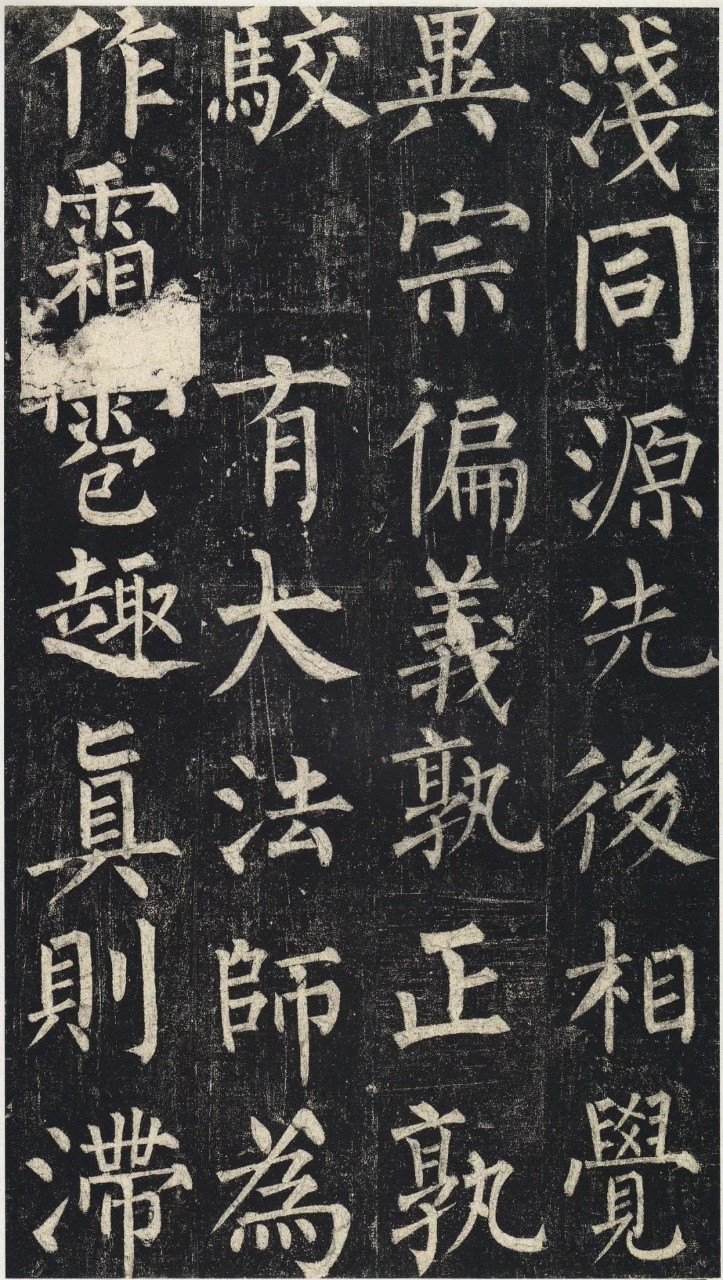 淺同源先後相覺
異宗偏義孰正孰
駮 有大法師為
作霜雹趣眞則滯